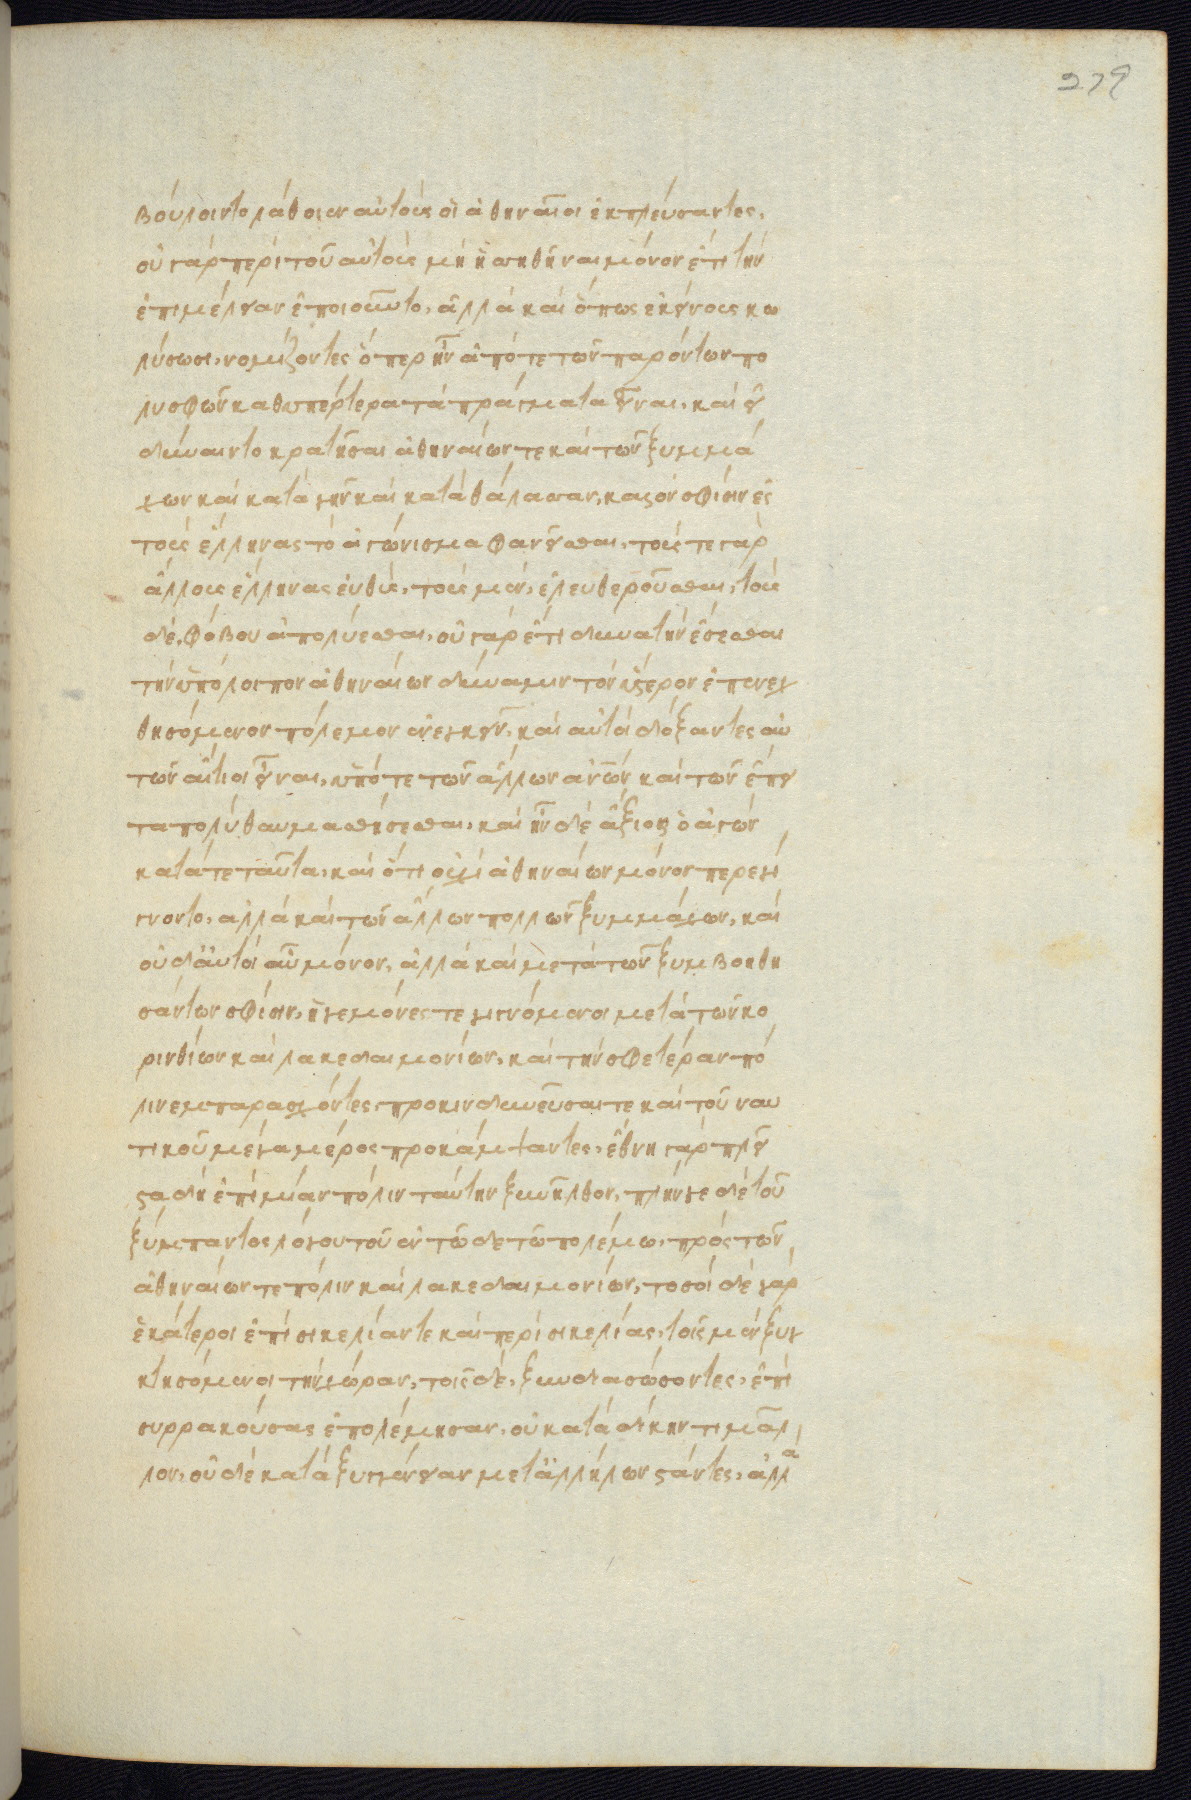 279
βούλοιντο λάθοιεν αὐτοὺς οἱ ἀθηναῖοι ἐκπλεύσαντες,
οὐ γὰρ περὶ τοῦ αὐτοὺς μὴ ἡσσηθῆναι μόνον ἔτι τὴν
ἐπιμέλειαν ἐποιοῦντο, ἀλλὰ καὶ ὅπως ἐκείνους κω
λύσωσι, νομίζοντες ὅπερ ἦν ἀπό τε τῶν παρόντων πο
λὺ σφῶν καθυπέρτερα τὰ πράγματα εἶναι, καὶ εἰ
δύναιντο κρατῆσαι ἀθηναίων τε καὶ τῶν ξυμμά
χων καὶ κατὰ γῆν καὶ κατὰ θάλασσαν, καλὸν σφίσιν ἐς
τοὺς ἕλληνας τὸ ἀγώνισμα φανεῖσθαι, τούς τε γὰρ
ἄλλους ἕλληνας εὐθὺς, τοὺς μὲν, ἐλευθεροῦσθαι, τοὺς
δὲ, φόβου ἀπολύεσθαι, οὐ γὰρ ἔτι δυνατὴν ἔσεσθαι
τὴν ὑπόλοιπον ἀθηναίων δύναμιν τὸν ὕστερον ἐπενεχ
θησόμενον πόλεμον ἐνεγκεῖν, καὶ αὐτοὶ δόξαντες αὐ
τῶν αἴτιοι εἶναι, ὑπό τε τῶν ἄλλων ἀνῶν καὶ τῶν ἔπει
τα πολὺ θαυμασθήσεσθαι, καὶ ἦν δὲ ἄξιος ὁ ἀγών
κατά τε ταῦτα, καὶ ὅτι οὐχὶ ἀθηναίων μόνον περιεγί
γνοντο, ἀλλὰ καὶ τῶν ἄλλων πολλῶν ξυμμάχων, καὶ
οὐδ' αὐτοὶ αὖ μόνον, ἀλλὰ καὶ μετὰ τῶν ξυμβοηθη
σάντων σφίσιν, ἡγεμόνες τε γιγνόμενοι μετὰ τῶν κο
ρινθίων καὶ λακεδαιμονίων, καὶ τὴν σφετέραν πό
λιν ἐμπαρασχόντες προκινδυνεῦσαι τε καὶ τοῦ ναυ
τικοῦ μέγα μέρος προκόψαντες, ἔθνη γὰρ πλεῖ
στα δὴ ἐπὶ μίαν πόλιν ταύτην ξυνῆλθον, πλήν γε δὲ τοῦ
ξύμπαντος λόγου τοῦ ἐν τῶδε τῶ πολέμω, πρὸς τῶν
ἀθηναίων τε πόλιν καὶ λακεδαιμονίων, τοσοίδε γὰρ
ἑκάτεροι ἐπὶ σικελίαν τε καὶ περὶ σικελίας, τοῖς μὲν ξυγ
κτησόμενοι τὴν χώραν, τοῖς δὲ, ξυνδιασώσοντες, ἐπὶ
συρρακούσας ἐπολέμησαν, οὐ κατὰ δίκην τι μᾶλ
λον, οὐδὲ κατὰ ξυγγένειαν μετ' ἀλλήλων στάντες, ἀλλὰ